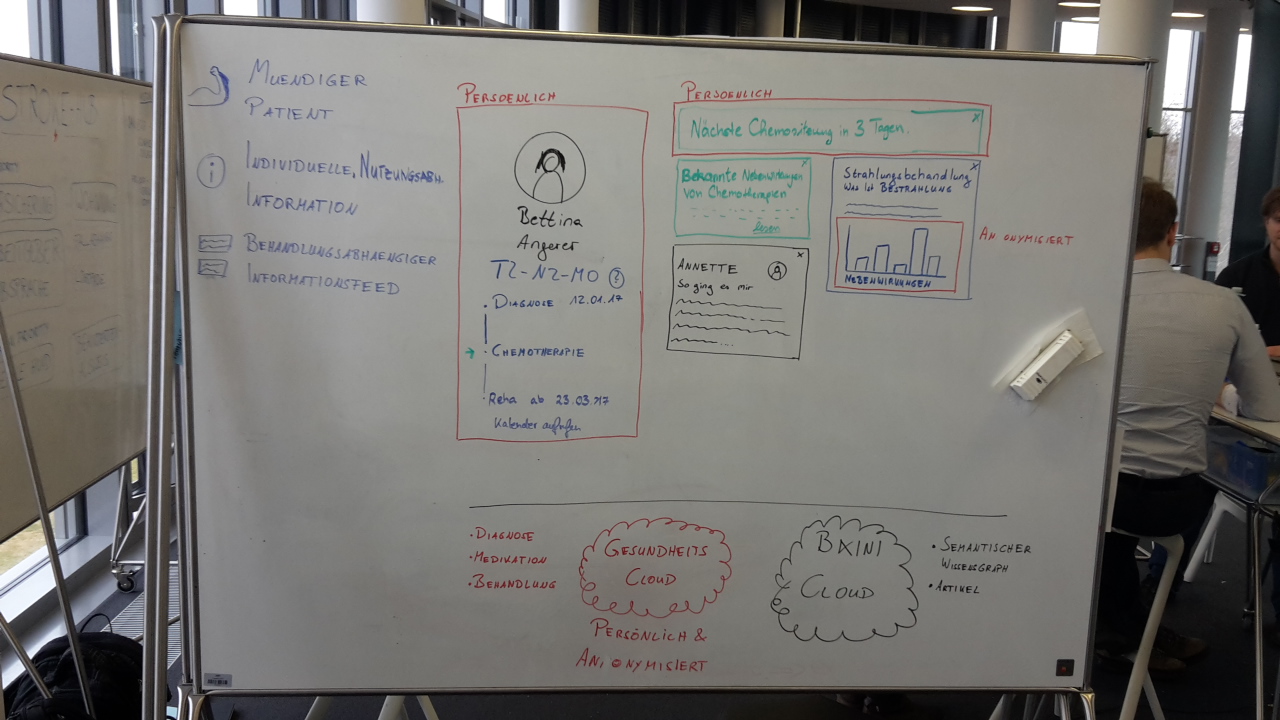 MUENDIGER
PATIENT
i
INDIVIDUELLE, NUTZUNGSABH.
INFORMATION
BEHANDLUNGSABHAENGIGER
INFORMATIONSFEED
PERSOENLICH
Bettina
Angerer
T2-N2-M0 ?
DIAGNOSE 12.01.17
→ CHEMOTHERAPIE
Reha ab 23.03.17
Kalender aufrufen
PERSOENLICH
Nächste Chemositzung in 3 Tagen. x
Bekannte Nebenwirkungen x
von Chemotherapien
lesen
Strahlungsbehandlung x
Was ist BESTRAHLUNG
NEBENWIRKUNGEN
ANONYMISIERT
ANNETTE x
So ging es mir
• DIAGNOSE
• MEDIKATION
• BEHANDLUNG
GESUNDHEITS
CLOUD
PERSÖNLICH &
ANONYMISIERT
BXINI
CLOUD
• SEMANTISCHER
WISSENSGRAPH
• ARTIKEL